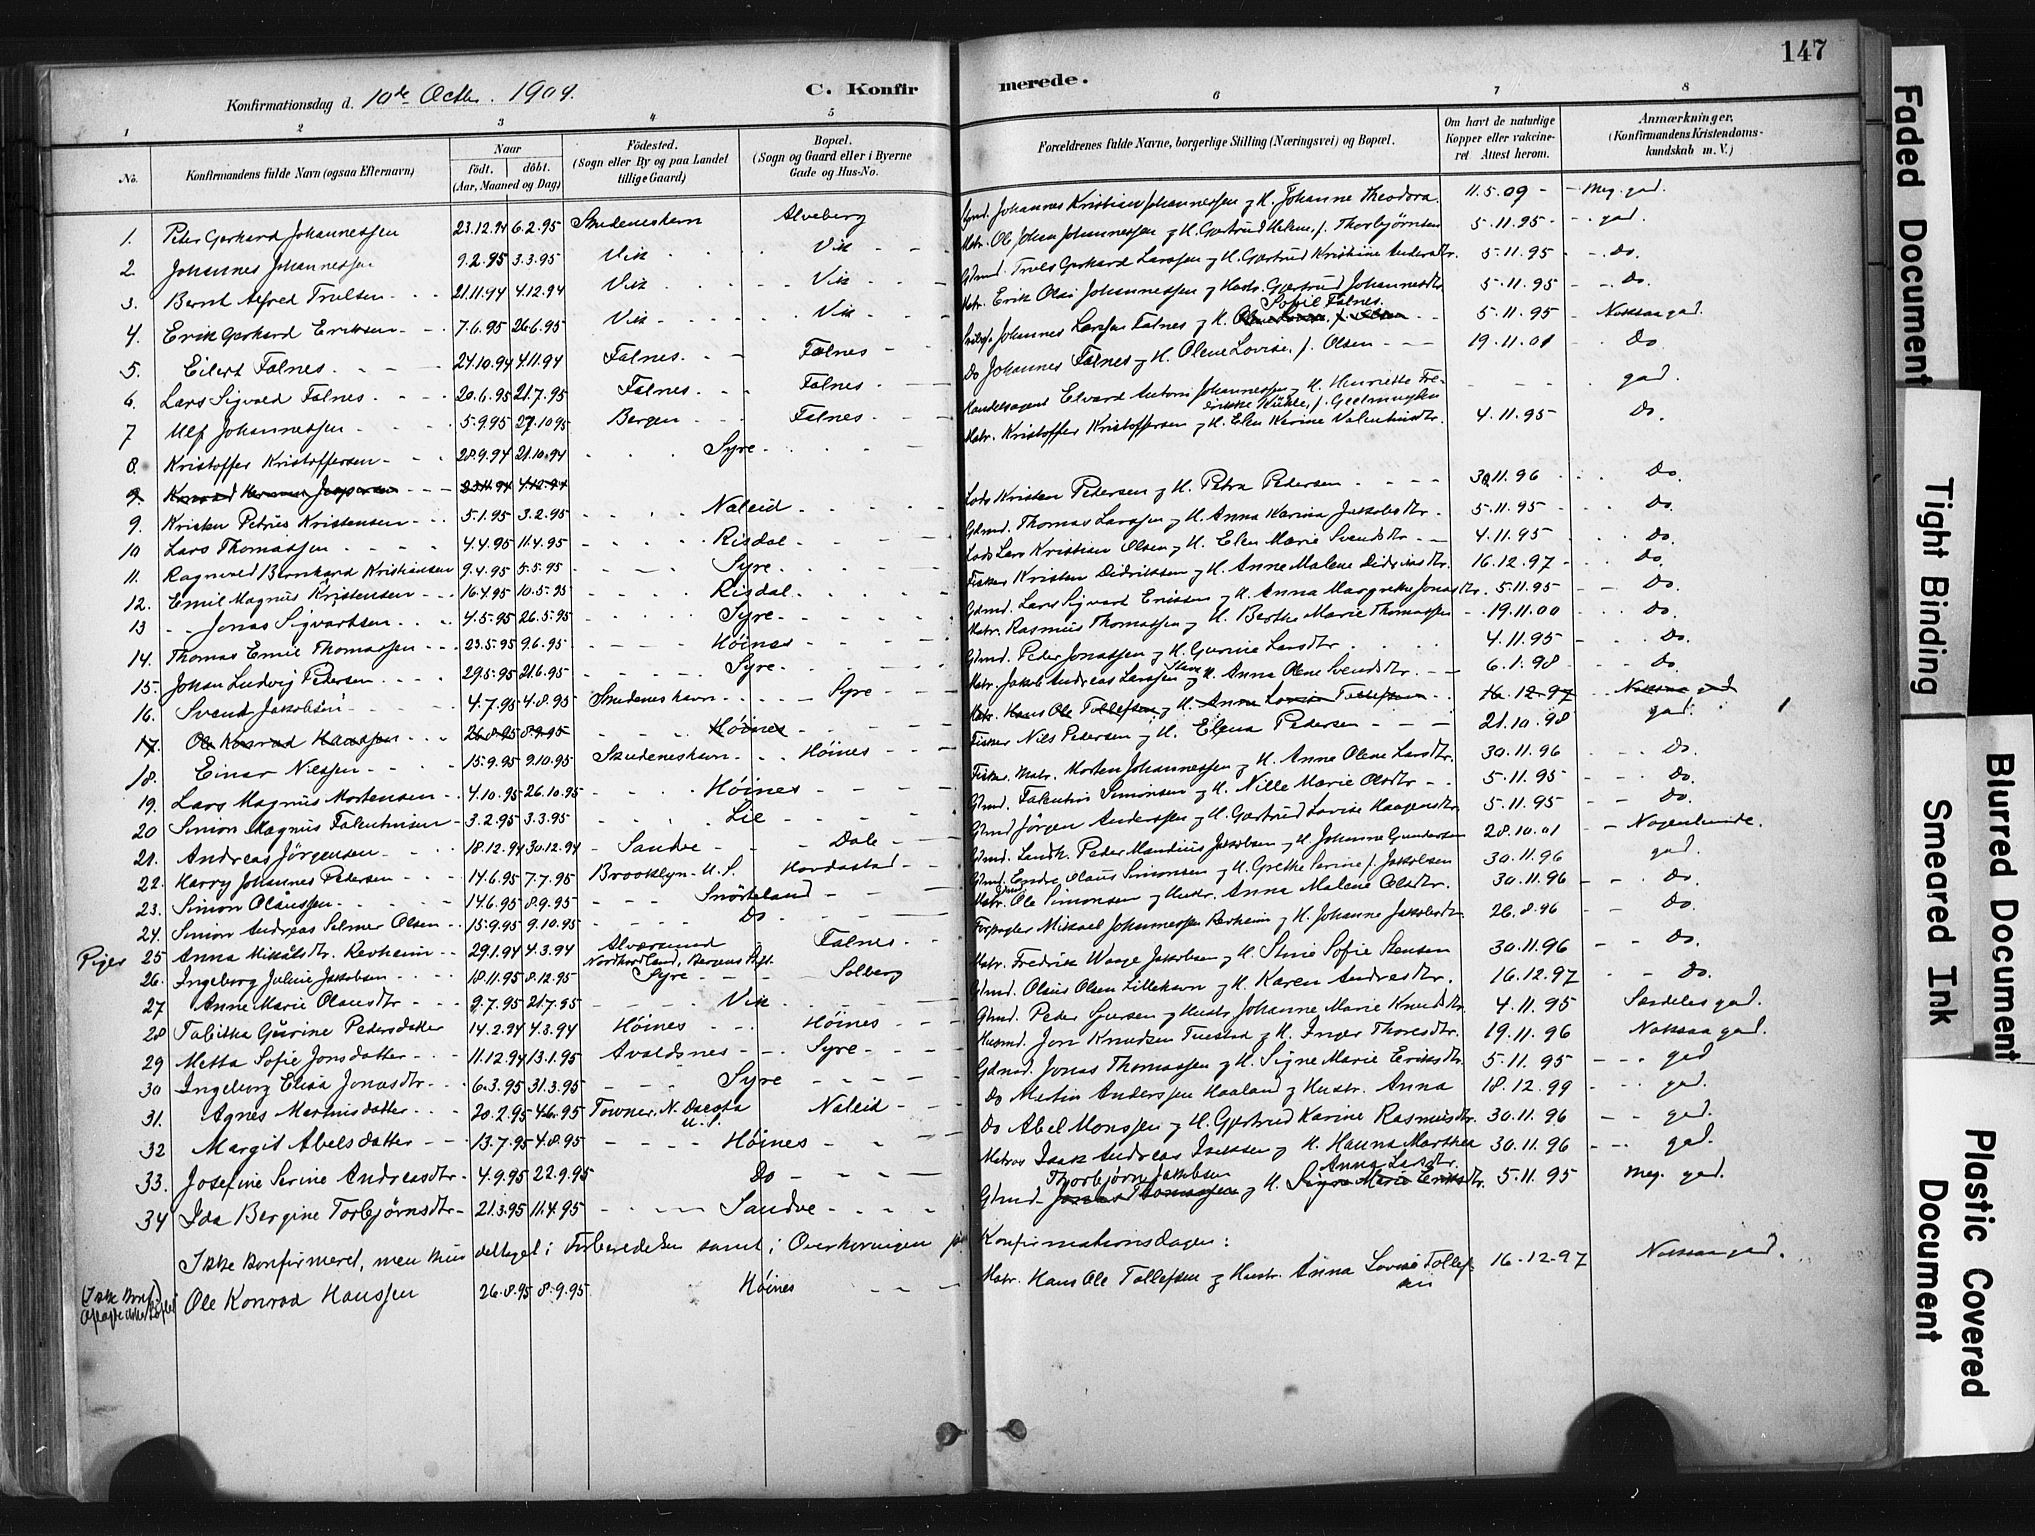 147
Konfirmationsdag d. 10de Octbr. 1909.
C. Konfirmerede.
1 2 3 4 5 6 7 8
No.
Konfirmandens fulde Navn (ogsaa Efternavn)
Naar
födt. döbt.
(Aar, Maaned og Dag)
Födested.
(Sogn eller By og paa Landet
tillige Gaard)
Bopæl.
(Sogn og Gaard eller i Byerne
Gade og Hus-No.
Forældrenes fulde Navne, borgerlige Stilling (Næringsvei) og Bopæl.
Om havt de naturlige
Kopper eller vakcine-
ret Attest herom.
Anmærkninger.
(Konfirmandens Kristendoms-
kundskab m. V.)
1. Peter Gerhard Johannessen 23.12.94 6.2.95 Skudeneshavn Alveberg Johannes Kristian Johannessen og H. Johanne Theodora. 11.5.09 - Meg. god.
2. Johannes Johannessen 9.2.95 3.3.95 Vik Vik Matr. Ole Johan Johannessen og H. Gjertrud Helene, f. Thorbjørnsen 5.11.95 - god.
3. Bernt Alfred Trulsen 21.11.94 4.12.94 Vik Vik Gdmd. Truls Gerhard Larssen og H. Gjertrud Kristine Andersdtr. 5.11.95 - Do.
4. Erik Gerhard Eriksen 7.6.95 26.6.95 Vik Vik Matr. Erik Olai Johannessen og Hustr. Gjertrud Johannesdtr 5.11.95 - Do.
5. Eilert Falnes 24.10.94 4.11.94 Falnes Falnes Johannes Larssen Falnes og H. Sofie Falnes. 5.11.95 - Noksaa god.
6. Lars Sigvald Falnes 20.6.95 21.7.95 Falnes Falnes Do Johannes Falnes og H. Olene Lovise, f. Olsen 19.11.01 Do
7 Ulf Johannessen 5.9.95 27.10.95 Bergen Falnes Handelsagent Edvard Anton Johannessen og H. Henriette Fre-
derikke Kühle, f. Geelmuyden god.
8. Kristoffer Kristoffersen 28.9.94 21.10.94 Syre Matr. Kristoffer Kristoffersen og H. Elen Karine Valentinsdtr. 4.11.95 Do.
9. Konrad Herman Jespersen 23.11.94 4.12.94
9. Kristen Petrus Kristensen 5.1.95 3.2.95 Naleid Lods Kristen Pedersen og H. Petra Pedersen 30.11.96 Do
10 Lars Thomassen 4.4.95 11.4.95 Risdal Gdmd. Thomas Larssen og H. Anna Karina Jakobsdtr. 5.11.95 Do.
11. Ragnvald Bernhard Kristiansen 9.4.95 5.5.95 Syre Lods Lars Kristian Olsen og H. Elen Marie Svendsdtr. 4.11.95 Do.
12. Emil Magnus Kristensen 16.4.95 10.5.95 Risdal Fisker Kristen Didriksen og H. Anne Malene Didriksdtr. 16.12.97 Do.
13 Jonas Sigvartsen 4.5.95 26.5.95 Syre Gdmd. Lars Sigvart Eriksen og H. Anna Margrethe Jonasdtr. 5.11.95 Do.
14. Thomas Emil Thomassen 23.5.95 9.6.95 Høines Matr. Rasmus Thomassen og H. Berthe Marie Thomassen 19.11.00 Do.
15. Johan Ludvig Pedersen 29.5.95 21.6.95 Syre Gdmd. Peder Jonassen og H. Gurine Larsdtr. 4.11.95 Do.
16. Svend Jakobsen 4.7.95 4.8.95 Skudeneshavn Syre Matr. Jakob Andreas Larssen og H. Anna Olene Svendsdtr. 6.1.98 Do.
17. Ole Konrad Hanssen 26.8.95 8.9.95 Høines Matr. Hans Ole Tollefsen og H. Anna Lovise Tollefsen 16.12.97 Noksaa god
18. Einar Nilssen 15.9.95 9.10.95 Skudeneshavn Høines Fisker Nils Pedersen og H. Elena Pedersen 21.10.98 god.
19. Lars Magnus Mortensen 4.10.95 26.10.95 Høines Fisker, Matr. Morten Johannessen og H. Anne Olene Larsdtr. 30.11.96 Do.
20 Simon Magnus Falentinsen 3.2.95 3.3.95 Lie Gdmd. Falentin Simonsen og H. Nille Marie Olsdtr 5.11.95 Do.
21. Andreas Jörgensen 18.12.94 30.12.94 Sandve Dale Gdmd Jörgen Anderssen og H. Gjertrud Lovise Haagensdtr. 5.11.95 Do.
22. Harry Johannes Pedersen 14.6.95 7.7.95 Brooklyn - U.S. Hordastad Gdmd. Landh. Peder Mandius Jakobsen og H. Johanne Gundersen 28.10.01 - Nogenlunde.
23. Simon Olaussen 14.6.95 8.9.95 Snörteland Gdmd. Endre Olaus Simonsen og H. Grethe Serine f. Jakobsen 30.11.96 god.
24. Simon Andreas Selmer Olsen 15.9.95 9.10.95 Do Matr. Ole Simonsen og Hustr. Anna Malene Olsdtr. 30.11.96 Do.
Piger 25 Anna Mikalsdtr. Revheim 29.1.94 4.3.94 Alversund
Nordhordland, Bergens Stift. Falnes Forpagter Mikael Johannessen Revheim og H. Johanne Jakobsdtr. 26.8.96 Do
26. Ingeborg Juline Jakobsen 18.11.95 8.12.95 Syre Solberg Matr. Fredrik Waage Jakobsen og H. Stine Sofie Stensen 30.11.96 Do.
27 Anne Marie Olausdtr 9.7.95 21.7.95 Vik Gdmd. Olaus Olsen Lillehavn og H. Karen Andreasdtr. 16.12.97 Do.
28 Tabitha Gurine Pedersdatter 14.2.94 4.3.94 Høines Høines Gdmd. Peder Sjursen og Hustr. Johanne Marie Knudsdtr. 4.11.95 Særdeles god.
29 Metta Sofie Jonsdatter 11.12.94 13.1.95 Avaldsnes Syre Husmd. Jon Knudsen Tuestad og H. Inger Thoresdtr. 19.11.96 Noksaa god.
30 Ingeborg Elisa Jonasdtr. 6.3.95 31.3.95 Syre Gdmd. Jonas Thomassen og H. Signe Marie Eriksdtr. 5.11.95 god
31. Agnes Martinsdatter 20.2.95 4.6.95 Towner, N. Dacota
U.S. Naleid Do Martin Anderssen Haaland og Hustr. Anna 18.12.99 god.
32 Margit Abelsdatter 13.7.95 4.8.95 Høines Do Abel Monssen og H. Gjertrud Karine Rasmusdtr. 30.11.96 god.
33. Josefine Serine Andreasdtr. 4.9.95 22.9.95 Do Matros Isak Andreas Isaksen og H. Hanna Marthea 30.11.96 god.
34 Ida Bergine Torbjørnsdtr 21.3.95 11.4.95 Sandve Gdmd. Thorbjørn Jakobsen Jonas Thomassen og H. Anna Larsdtr. Signe Marie Eriksdtr. 5.11.95 Meg. god.
Ikke konfirmeret, men kun deltaget i Forberedelsen samt i Overhøringen paa Konfirmationsdagen:
(Ikke konf.)
Ole Konrad Hanssen 26.8.95 8.9.95 Høines Matr. Hans Ole Tollefsen og Hustr. Anna Lovise Tollef-
sen 16.12.97 Noksaa god.
Faded Document
Tight Binding
Blurred Document
Smeared Ink
Plastic Covered
Document